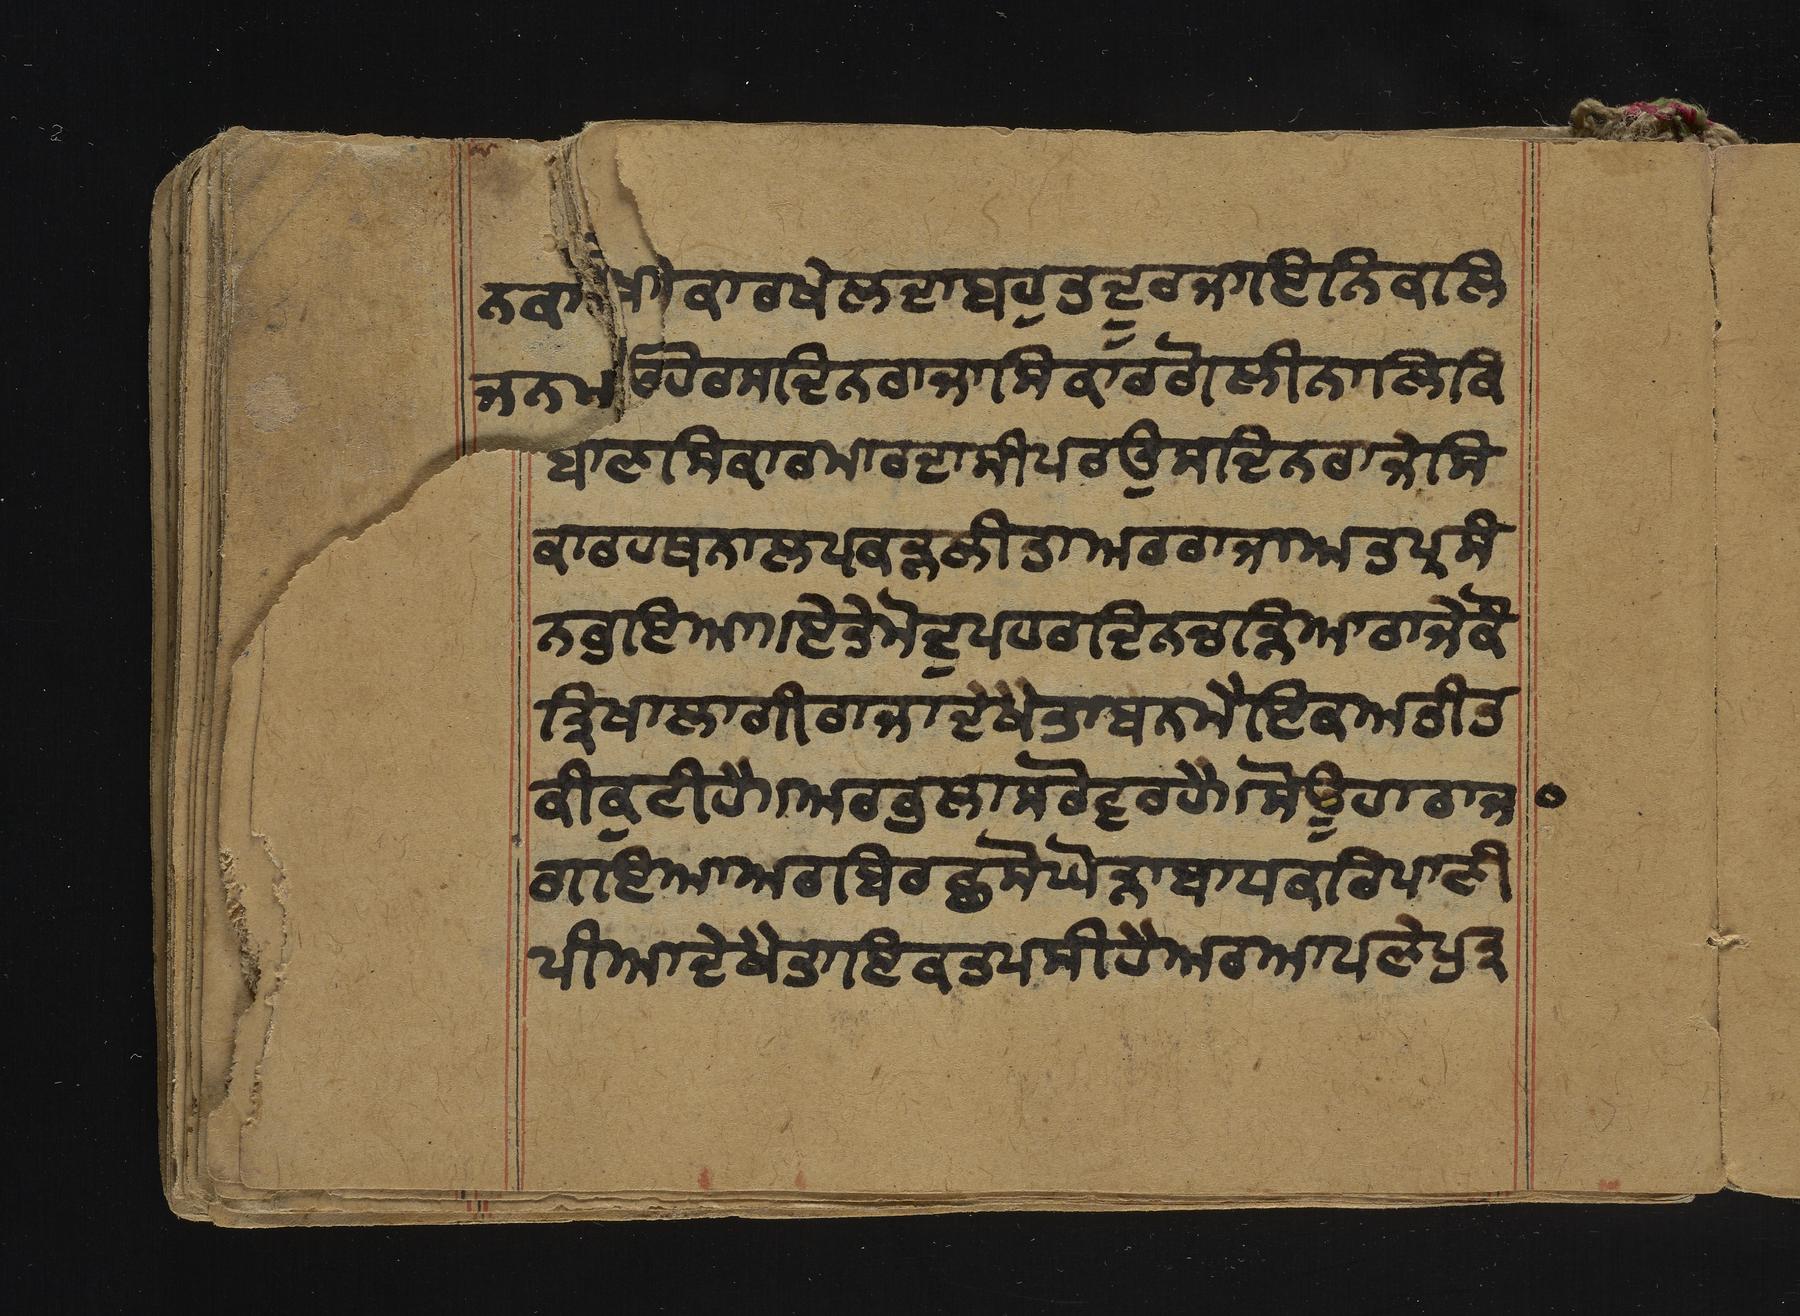 ਕਾਰਖੇਲਦਾਬਹੁਤਦੂਰਜਾਇਨਿਕਲਿ
ਹੋਰਸਦਿਨਰਾਜਾਸਿਕਾਰਗੋਲੀਨਾਲਿਕਿ
ਬਾਣਸਿਕਾਰਮਾਰਦਾਸੀਪਰਉਸਦਿਨਰਾਜੇਸਿ
ਕਾਰਹਥਨਾਲਪਕੜਲੀਤਾਅਰਰਾਜਾਅਤਪ੍ਰਸੰ
ਨਭੁਇਆ।ਏਤੇਮੋਦੁਪਹਰਦਿਨਚੜਿਆਰਾਜੇਕੌ
ਤ੍ਰਿਖਾਲਾਗੀਰਾਜਾਦੇਖੈਤਾਬਨਮੈਇਕਅਤੀਤ
ਕੀਕੁਟੀਹੈ।ਅਰਭਲਾਸਰੋਵਰਹੈ।ਸੋਊਹਾਰਾਜ
ਗਇਆਅਰਬਿਰਛਸੋਘੋੜਾਬਾਧਕਰਿਪਾਣੀ
ਪੀਆਦੇਖੈਤਾਇਕਤਪਸੀਹੈਅਰਆਪਣੇਪੁਤ੍ਰ